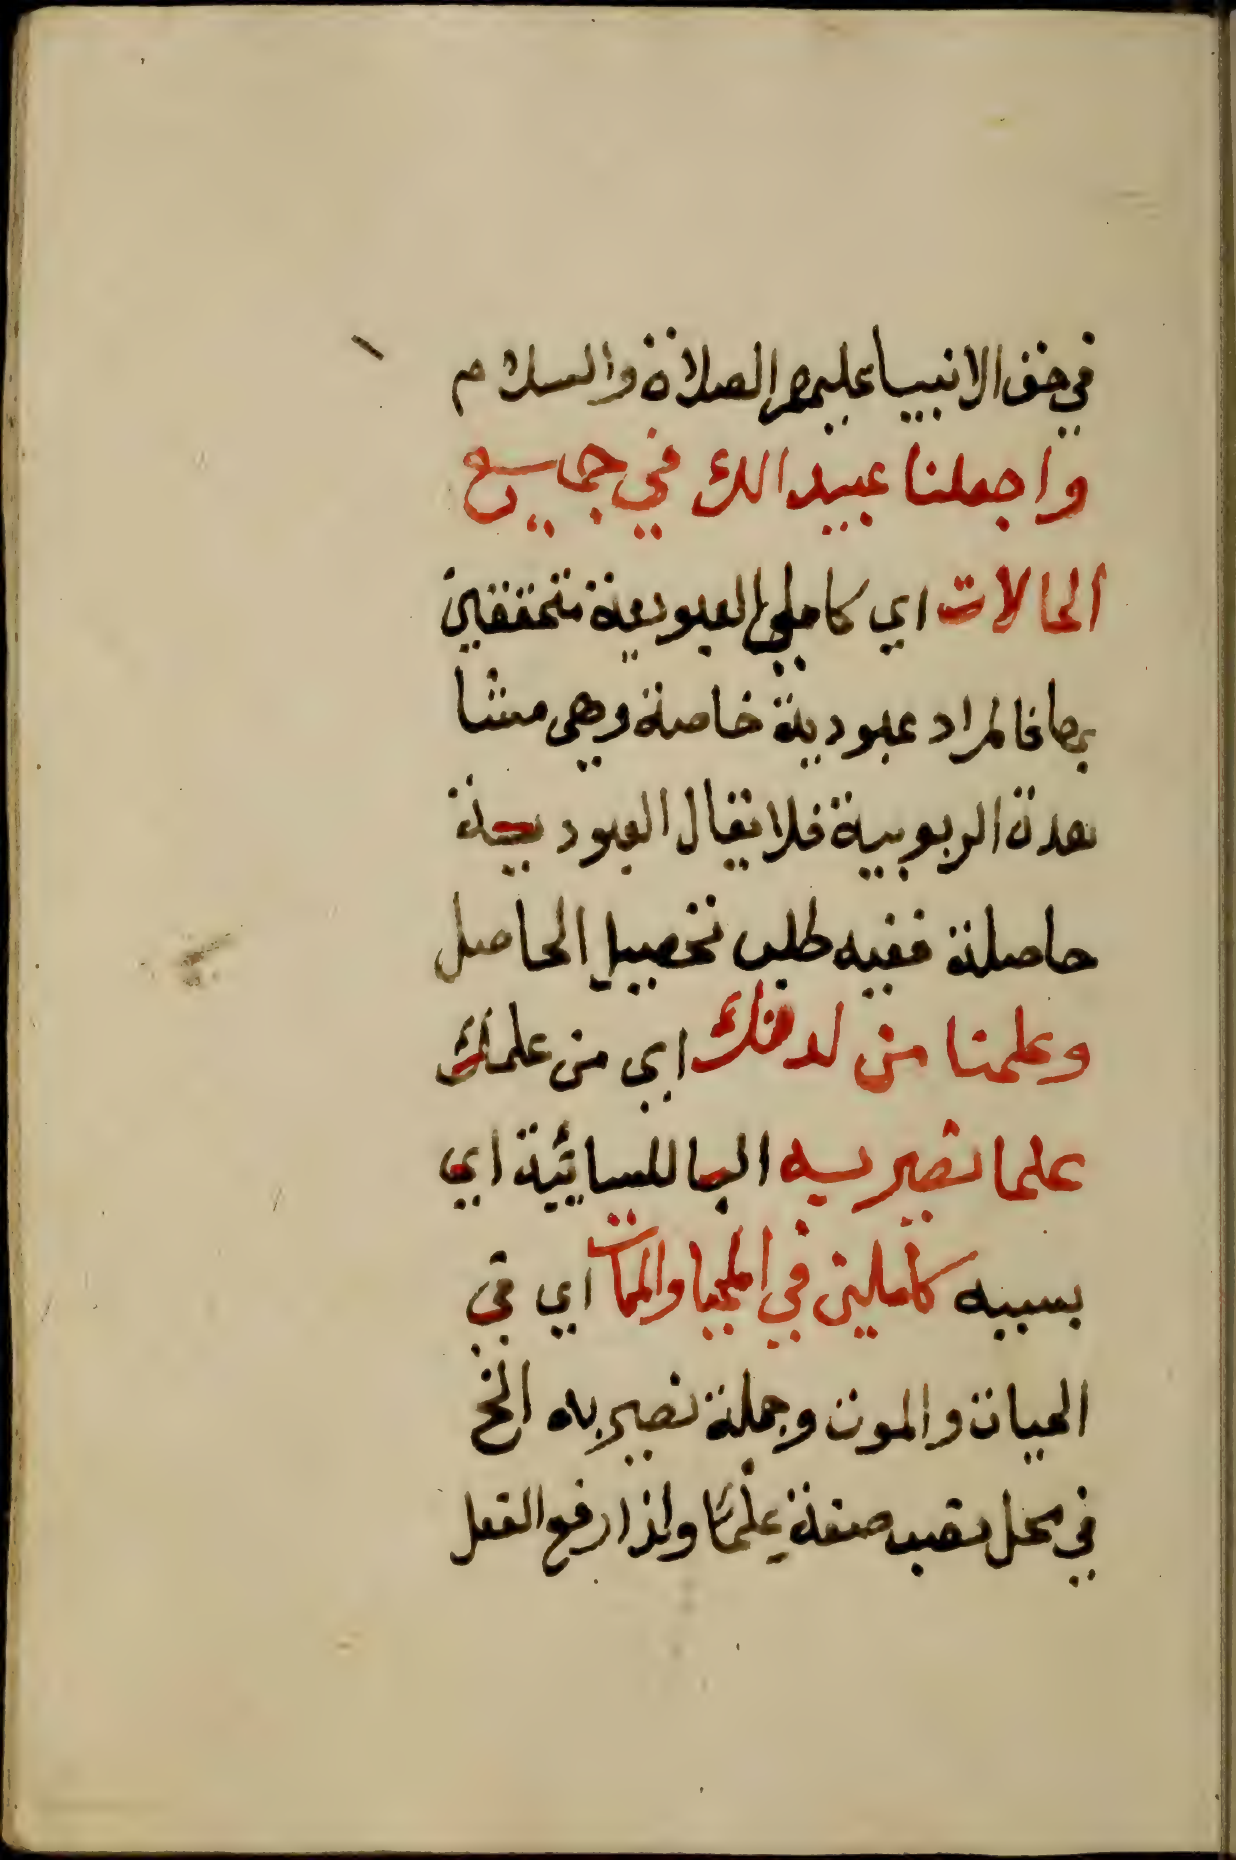 في حق الانبيا عليهم الصلاة والسلام
واجعلنا عبيدا لك في جميع
الحالات اي كاملي العبودية متحققين
بها فالمراد عبودية خاصة وهي منشا
هدة الربوبية فلا يقال العبودية
حاصلة ففيه طلب تحصيل الحاصل
وعلمنا من لدنك اي من علمك
علما نصير به البا للسائية اي
بسببه كاملين في المحيا والممات اي في
الحيات والموت وجملة نصير به الخ
في محل نصب صفة علما ولذا رفع الفعل